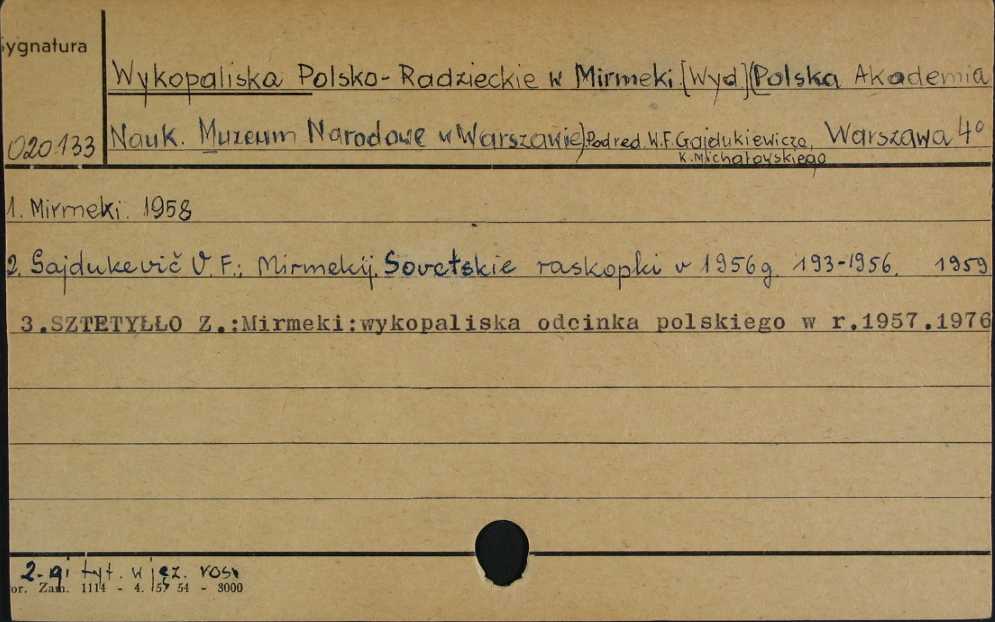 Sygnatura
Wykopaliska Polsko-Radzieckie w Mirmeki.[Wyd](Polska Akademia
020.133 Nauk. Muzeum Narodowe w Warszawie).Pod red. W.F. Gajdukiewicza, Warszawa 4°
K. Michałowskiego
1. Mirmeki. 1958
2. Gajdukevič V. F.: Mirmekij. Sovetskie raskopki v 1956g. 193-1956. 1959
3.SZTETYŁŁO Z.:Mirmeki:wykopaliska odcinka polskiego w r.1957.1976
2-gi tyt. w jęz. ros.
or. Zam. 1114 - 4. 57 54 - 3000